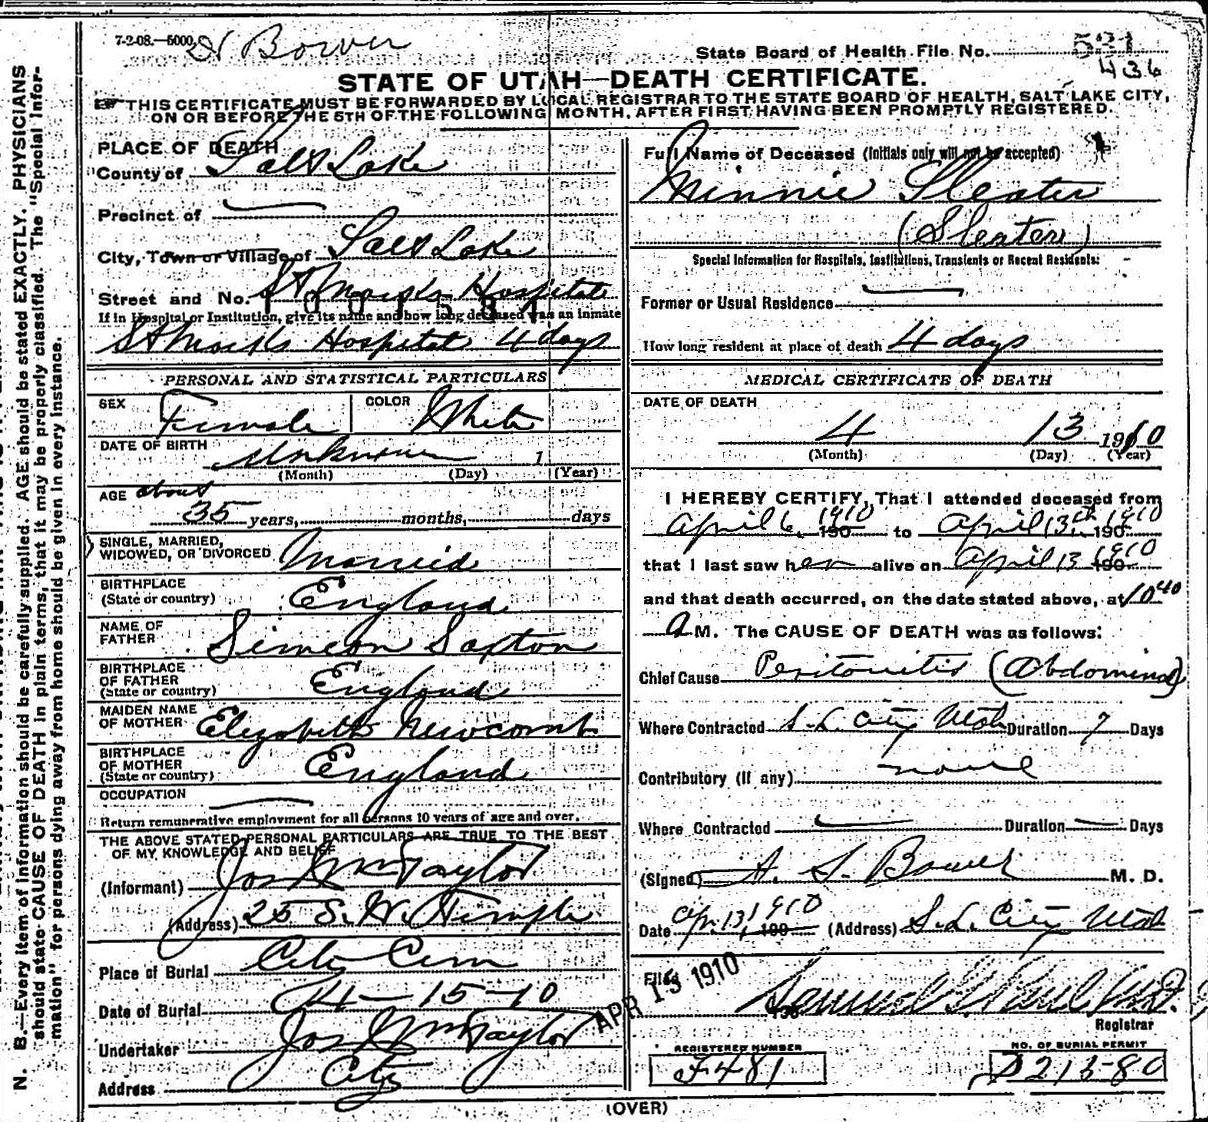 7-2-08.—5000
Bower
State Board of Health File No.
521
436
STATE OF UTAH—DEATH CERTIFICATE.
THIS CERTIFICATE MUST BE FORWARDED BY LOCAL REGISTRAR TO THE STATE BOARD OF HEALTH, SALT LAKE CITY,
ON OR BEFORE THE 5TH OF THE FOLLOWING MONTH, AFTER FIRST HAVING BEEN PROMPTLY REGISTERED.
N. B.—Every item of information should be carefully supplied. AGE should be stated EXACTLY. PHYSICIANS
should state CAUSE OF DEATH in plain terms, that it may be properly classified. The "Special Infor-
mation" for persons dying away from home should be given in every instance.
PLACE OF DEATH
County of Salt Lake
Precinct of —
City, Town or Village of Salt Lake
Street and No. St Marks Hospital
If in Hospital or Institution, give its name and how long deceased was an inmate
St Marks Hospital 4 days
PERSONAL AND STATISTICAL PARTICULARS
SEX Female COLOR White
DATE OF BIRTH Unknown 1
(Month) (Day) (Year)
AGE about
35 years, months, days
SINGLE, MARRIED,
WIDOWED, OR DIVORCED Married
BIRTHPLACE
(State or country) England
NAME OF
FATHER Simeon Saxton
BIRTHPLACE
OF FATHER
(State or country) England
MAIDEN NAME
OF MOTHER Elizabeth Newcomb
BIRTHPLACE
OF MOTHER
(State or country) England
OCCUPATION —
Return remunerative employment for all persons 10 years of age and over.
THE ABOVE STATED PERSONAL PARTICULARS ARE TRUE TO THE BEST
OF MY KNOWLEDGE AND BELIEF
(Informant) Jos Wm Taylor
(Address) 25 S. W. Temple
Place of Burial City Cem
Date of Burial 4-15-10
Undertaker Jos Wm Taylor
Address City
Full Name of Deceased (Initials only will not be accepted)
Minnie Sleater
(Sleater)
Special Information for Hospitals, Institutions, Transients or Recent Residents:
Former or Usual Residence —
How long resident at place of death 4 days
MEDICAL CERTIFICATE OF DEATH
DATE OF DEATH
4 13 1910
(Month) (Day) (Year)
I HEREBY CERTIFY, That I attended deceased from
April 6, 1910 190 to April 13th 1910 190
that I last saw her alive on April 13 1910 190
and that death occurred, on the date stated above, at 10 40
A M. The CAUSE OF DEATH was as follows:
Chief Cause Peritonitis (Abdominal)
Where Contracted S. L. City Utah Duration 7 Days
Contributory (if any) none
Where Contracted — Duration — Days
(Signed) A. S. Bower M. D.
Date Apr. 13, 1910 190 (Address) S. L. City Utah
Filed APR 15 1910
Registrar
REGISTERED NUMBER
F481
NO. OF BURIAL PERMIT
D21580
(OVER)